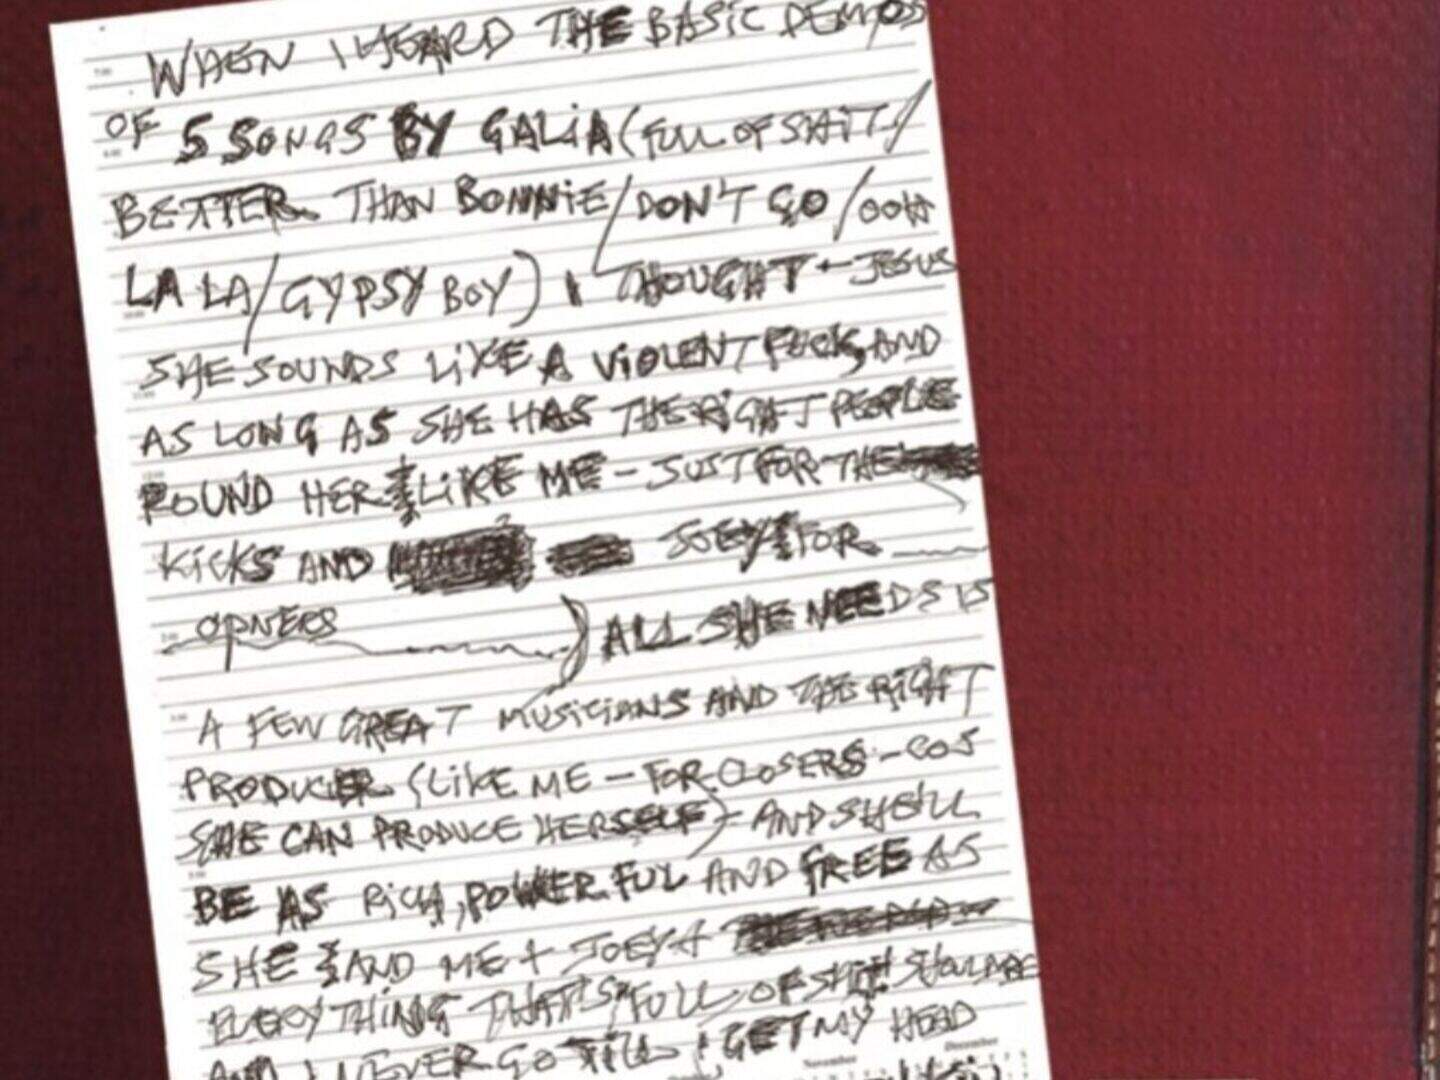 WHEN I HEARD THE BASIC DEMOS
OF 5 SONGS BY GALIA (FULL OF SHIT/
BETTER THAN BONNIE/DON'T GO/OOH
LA LA/GYPSY BOY) I THOUGHT - JESUS
SHE SOUNDS LIKE A VIOLENT FUCK, AND
AS LONG AS SHE HAS THE RIGHT PEOPLE
ROUND HER LIKE ME - JUST FOR THE
KICKS AND JOEY FOR
ALL SHE NEEDS IS
A FEW GREAT MUSICIANS AND THE RIGHT
PRODUCER (LIKE ME - FOR CLOSERS - COS
SHE CAN PRODUCE HERSELF) - AND SHE'LL
BE AS RICH, POWERFUL AND FREE AS
SHE AND ME + JOEY +
EVERYTHING THAT'S FULL OF SHIT SHOULD BE
AND I NEVER GO TILL I GET MY HEAD
November December